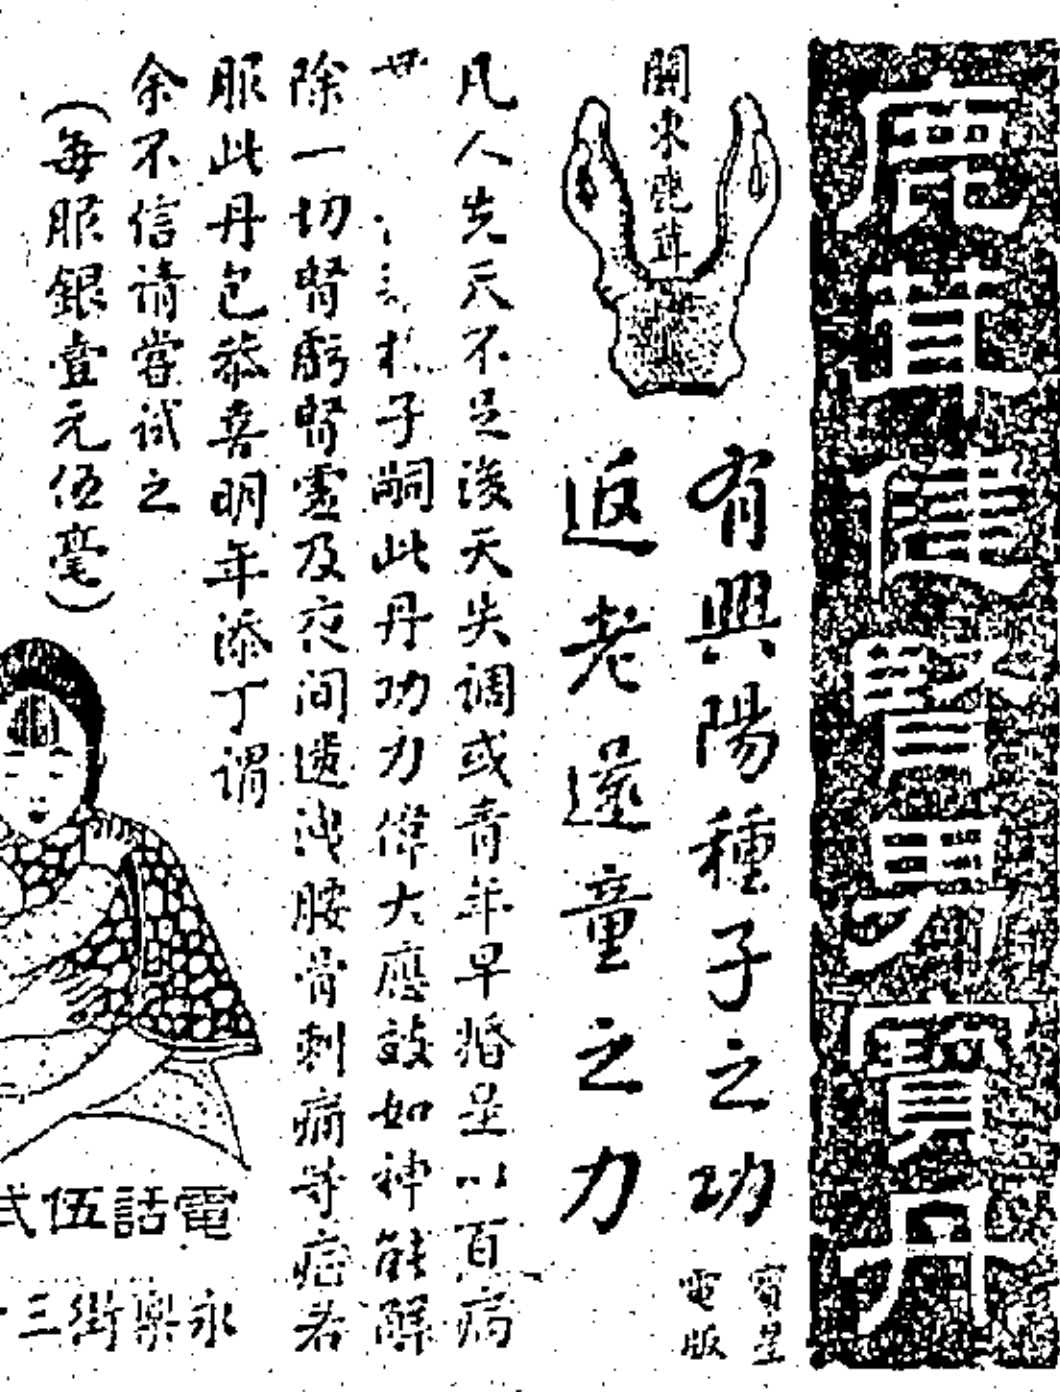 鹿茸健腎男寶丹
關東鹿茸
有興陽種子之功
返老還童之力
電版
凡人先天不足後天失调或青年早婚是以百病
子嗣此丹功力偉大應效如神能解
除一切腎虧腎虛及夜间遗洩腰骨刺痛等症若
服此丹包恭喜明年添丁谓
余不信请嘗试之
(每服銀壹元伍毫)
電話伍弍
永樂街三